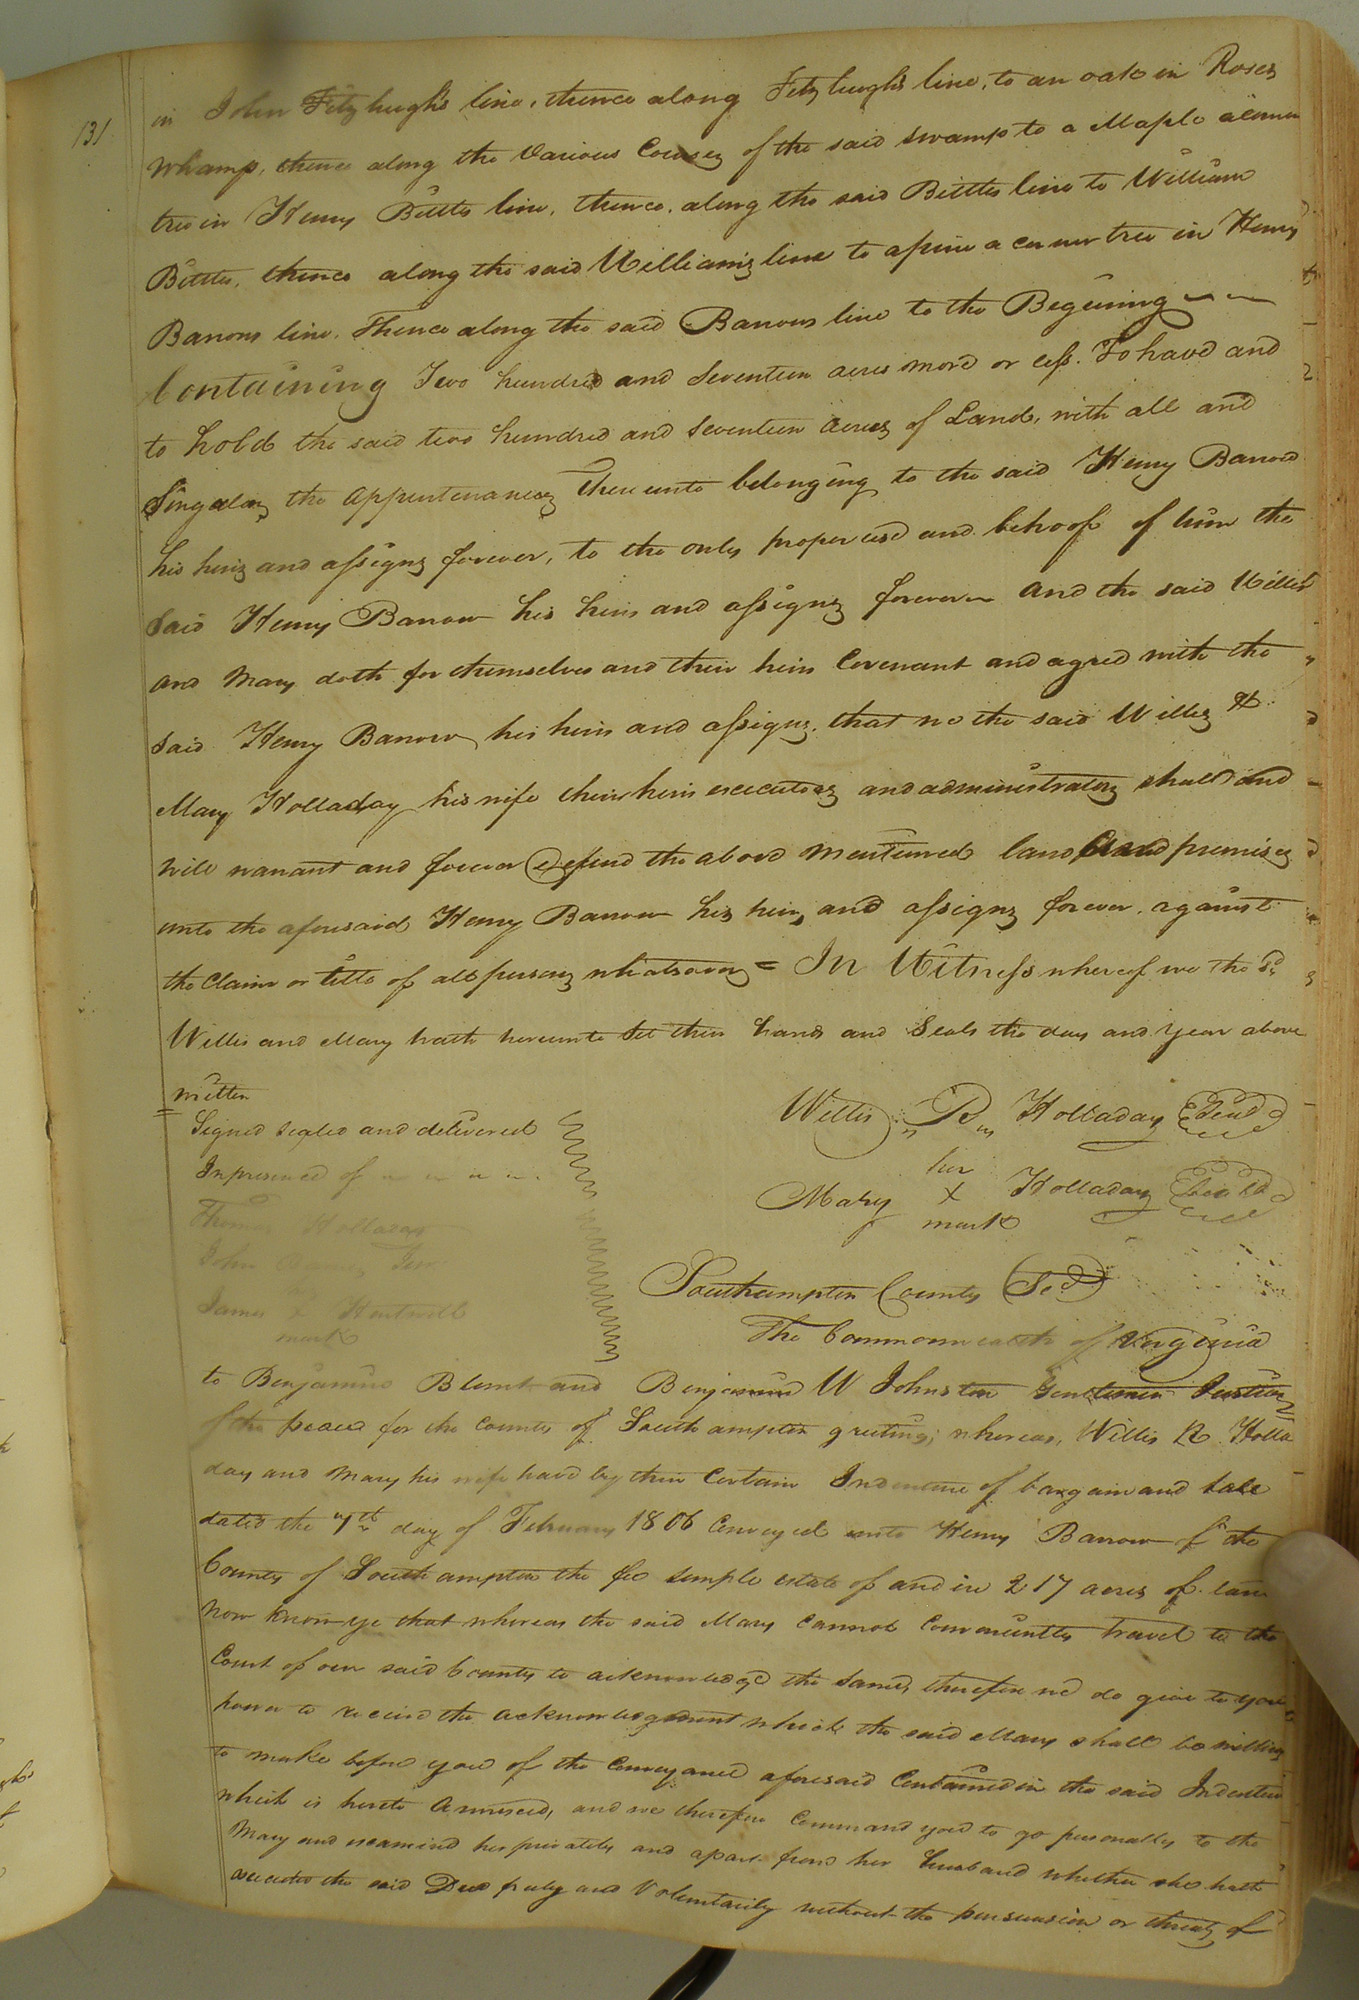 131
in John Fitzhugh's line, thence along Fitzhugh's line, to an oak in Roses
swamp, thence along the various Courses of the said swamp to a Maple a corner
tree in Henry Bittles line, thence, along the said Bittles line to William
Bittles, thence along the said William's line to a pine a corner tree in Henry
Barrows line. Thence along the said Barrows line to the Begining
Containing Two hundred and Seventeen acres more or less. To have and
to hold the said two hundred and seventeen acres of Land, with all and
Singular, the appurtenances thereunto belonging to the said Henry Barrow
his heirs and assigns forever, to the only proper use and behoof of him the
said Henry Barrow his heirs and assigns forever and the said Willis
and Mary doth for themselves and their heirs Covenant and agree with the
said Henry Barrow, his heirs and assigns. that we the said Willis &
Mary Holladay his wife their heirs executors and administrators shall and
will warrant and forever Defend the above mentioned land and premises
unto the aforesaid Henry Barrow his heirs, and assigns forever. against
the Claim or title of all persons whatsoever = In Witness whereof we the Sd
Willis and Mary hath hereunto Set their hands and Seals the day and year above
written
Willis R Holladay Seal
Signed sealed and delivered
In presence of
her
Mary X Holladay Seal
mark
Thomas Holladay
John
James x
mark
Southampton County Sct
The Commonwealth of Virginia
to Benjamin Blunt and Benjamin W Johnston Gentlemen Justices
of the peace for the County of Southampton greeting; whereas, Willis R Holla
day and Mary his wife have by their Certain Indenture of bargain and sale
dated the 7th day of February 1806 Conveyed unto Henry Barrow of the
County of Southampton the fee simple estate of and in 217 acres of land
Now know ye that whereas the said Mary cannot Conveniently travel to the
Court of our said County to acknowledge the same, therefore we do give to you
power to receive the acknowledgement which the said Mary shall be willing
to make before you of the Conveyance aforesaid Contained in the said Indenture
which is hereto annexed, and we therefore Command you to go personally to the
Mary and examined her privately and apart from her husband whether she hath
executed the said Deed freely and Voluntarily without the persuasion or threats of